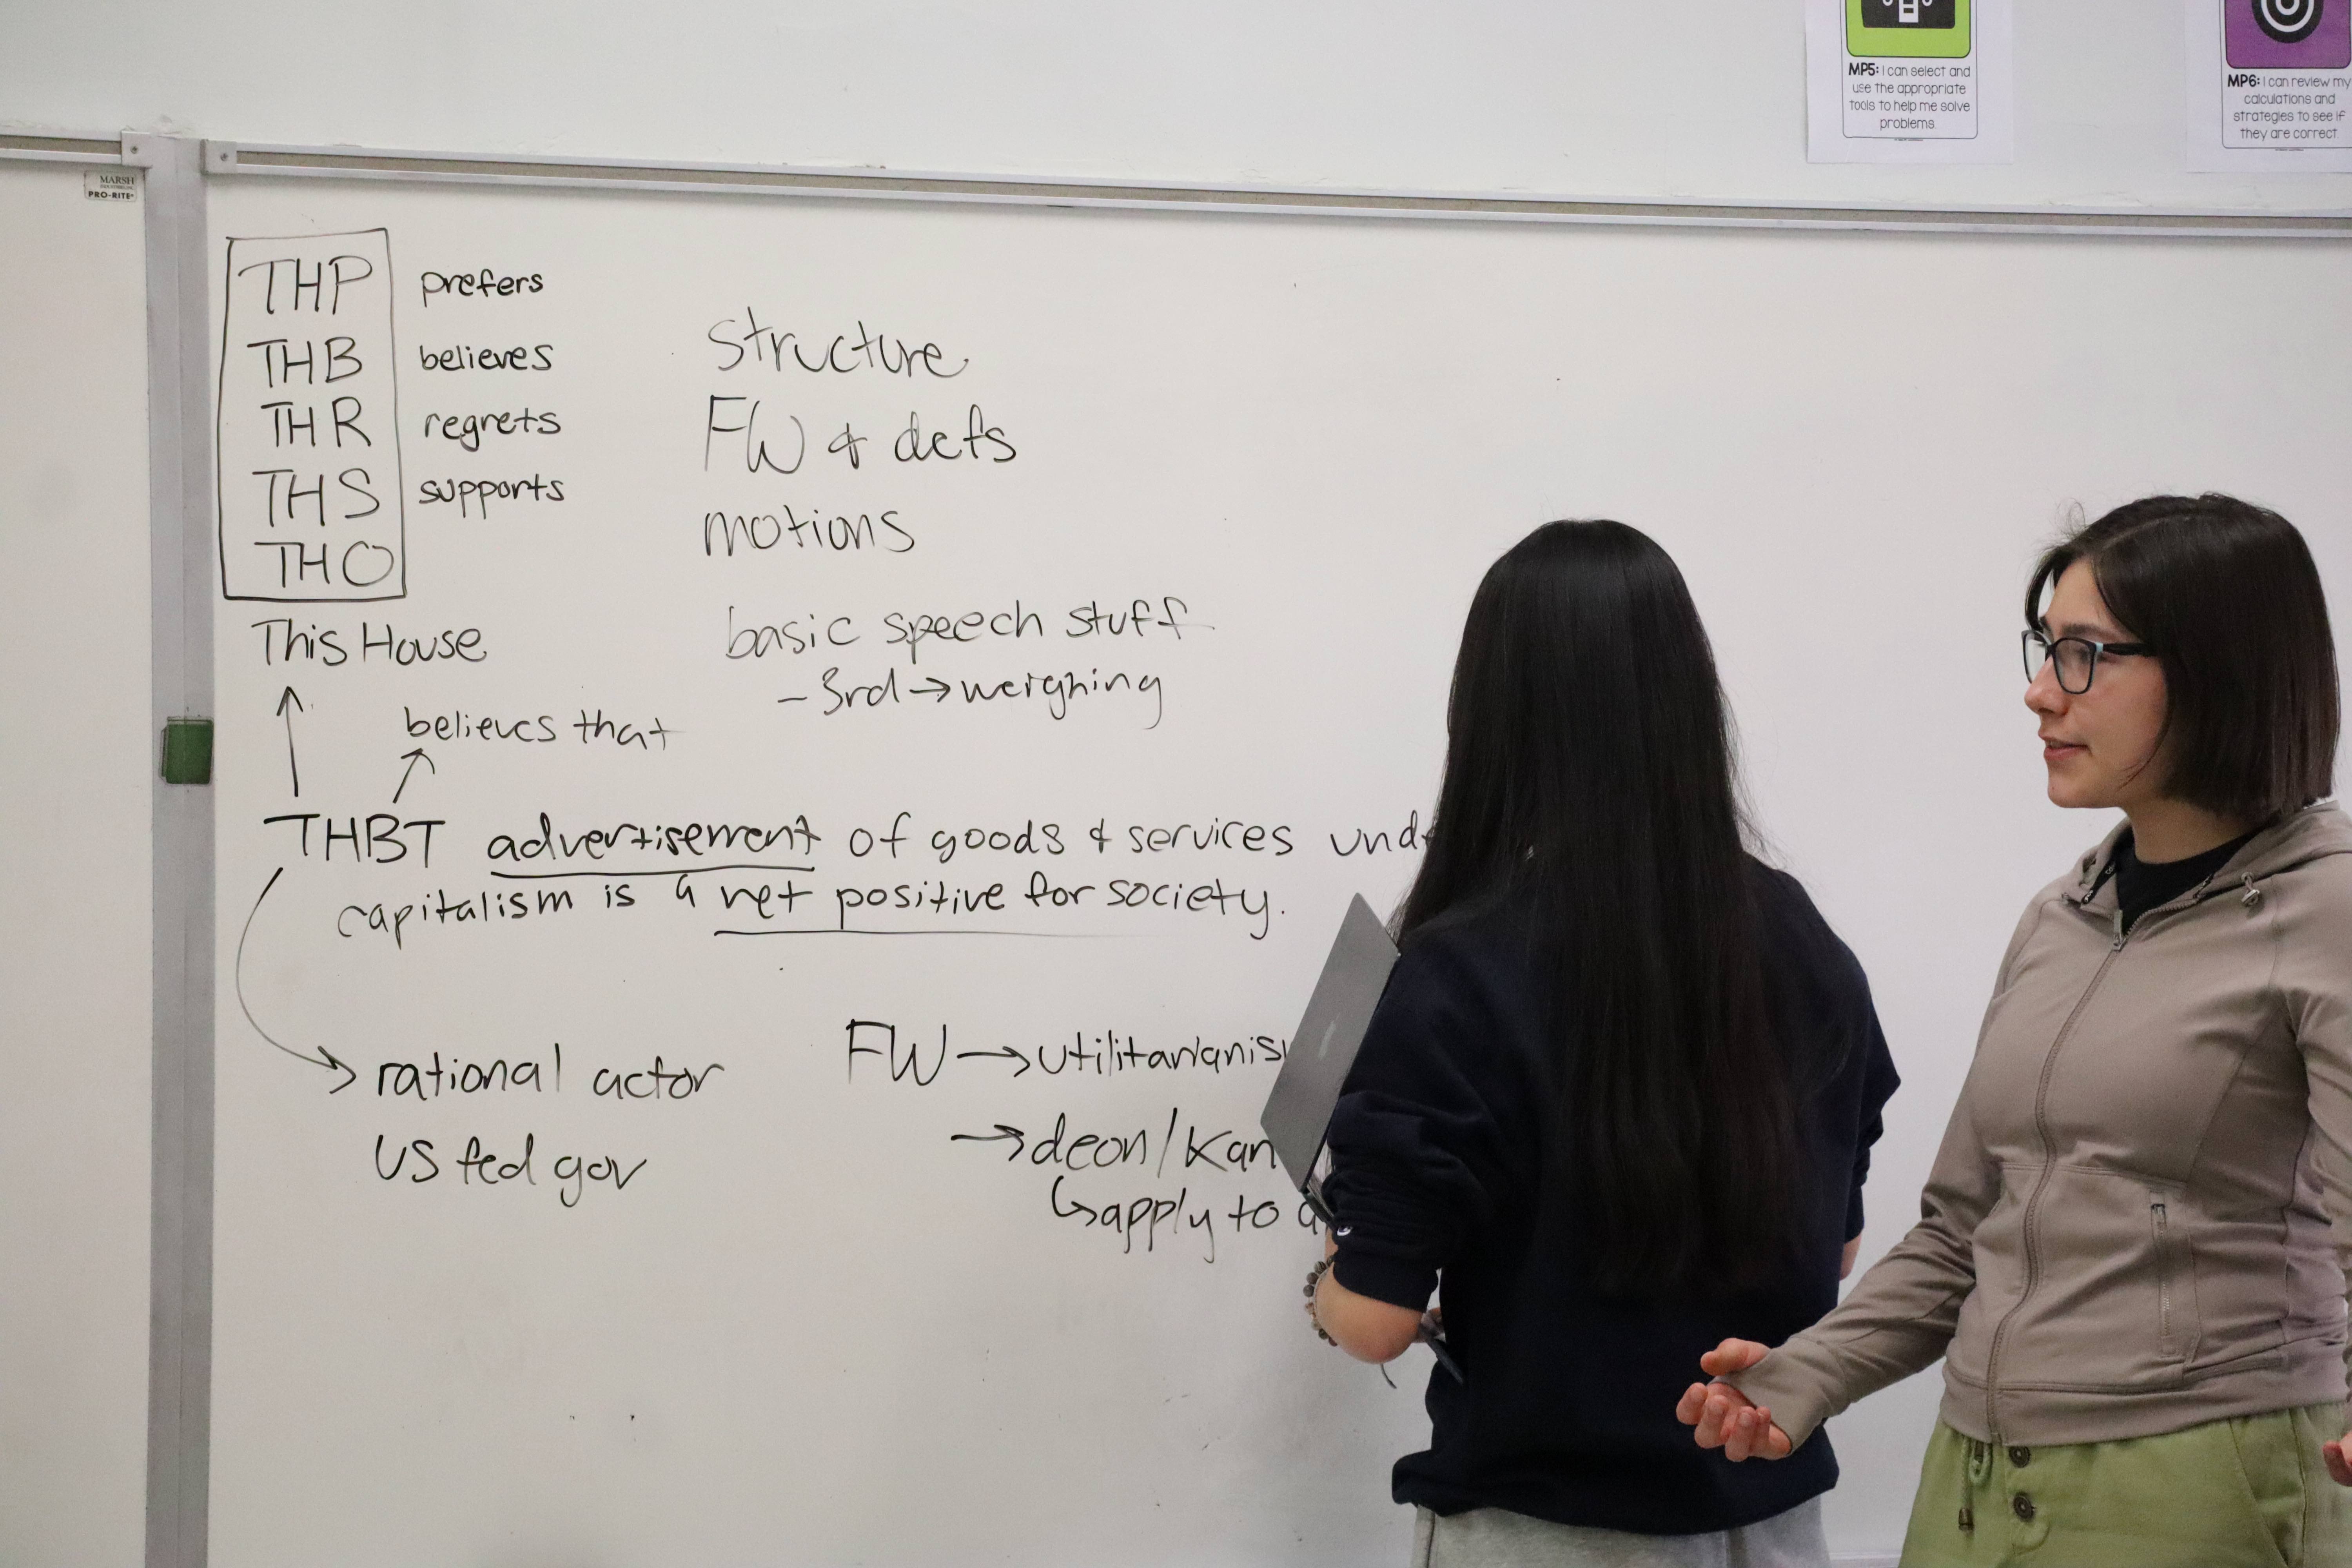 MP5: I can select and
use the appropriate
tools to help me solve
problems.
MP6: I can review my
calculations and
strategies to see if
they are correct.
MARSH
PRO-RITE
THP prefers
THB believes
THR regrets
THS supports
THO
This House
structure
FW & defs
motions
basic speech stuff
- 3rd → weighing
believes that
THBT advertisement of goods & services
capitalism is a net positive for society.
→ rational actor
US fed gov
FW →
→ deon/
↳ apply to